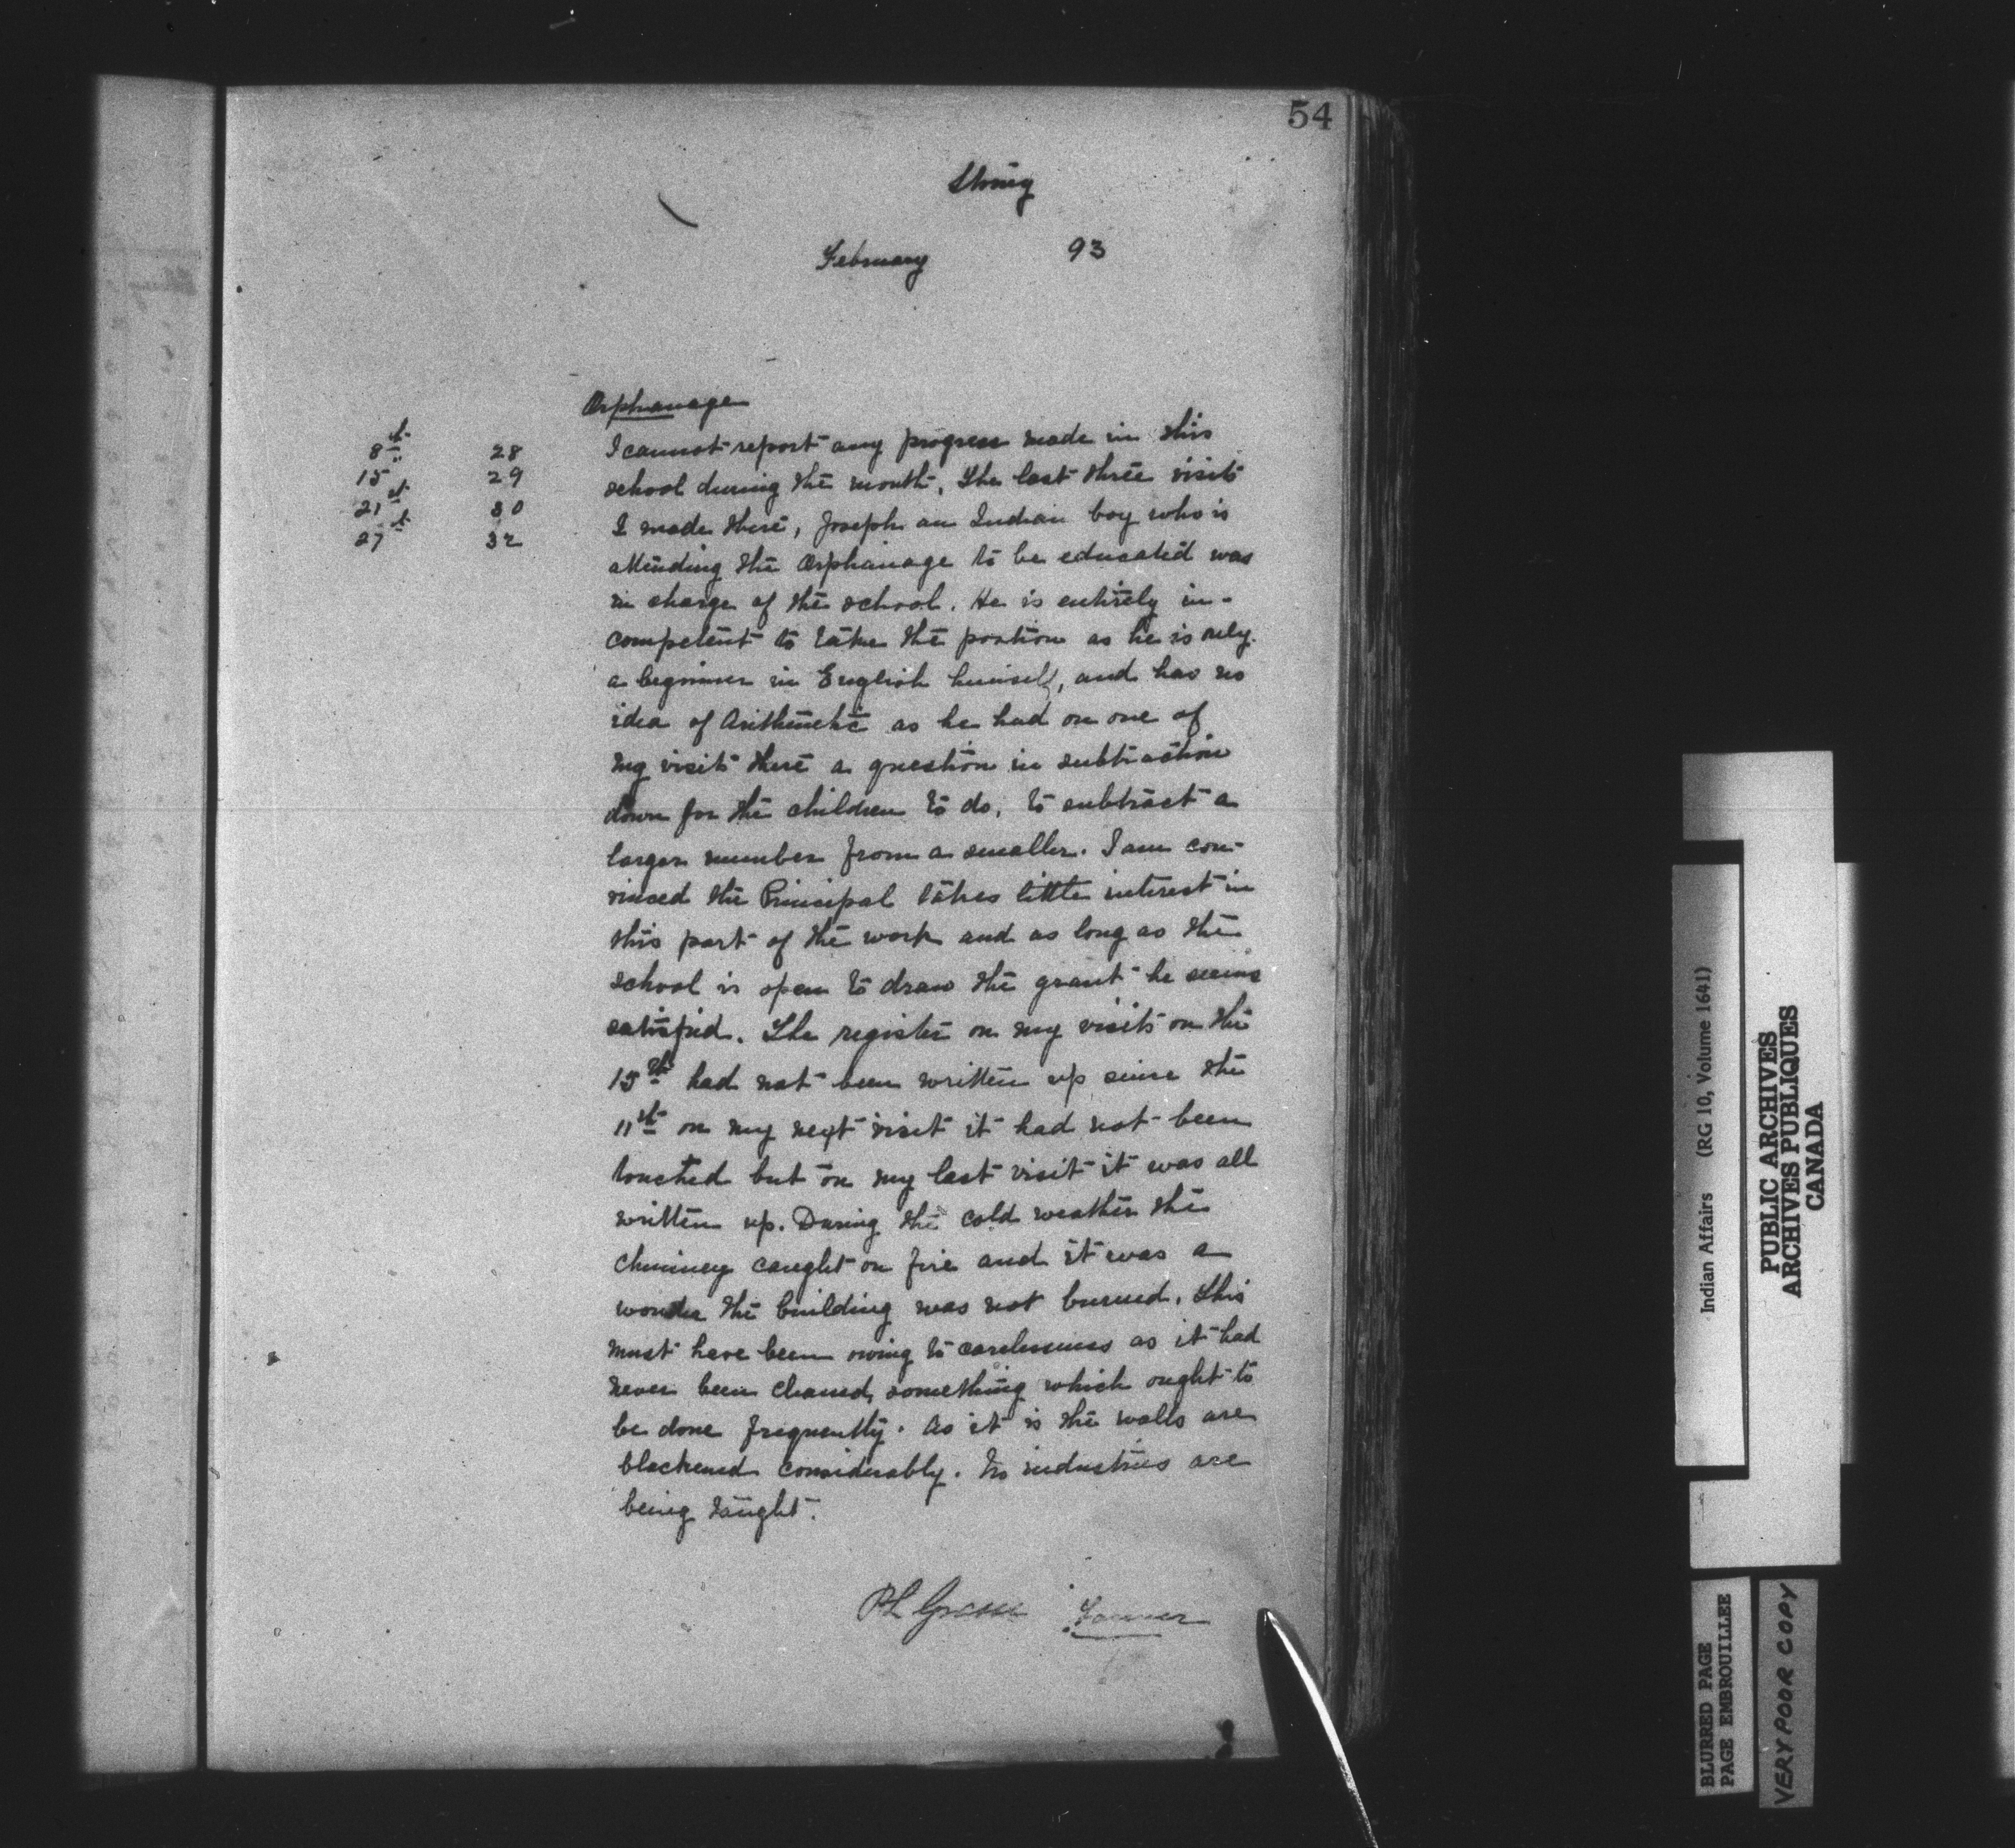 54
Stony
February 93
Orphanage
8th 28
15 29
21st 30
27th 32
I cannot report any progress made in this
school during the month. The last three visits
I made there, Joseph an Indian boy who is
attending the Orphanage to be educated was
in charge of the school. He is entirely in-
competent to take the position as he is only
a beginner in English himself, and has no
idea of Arithmetic as he had on one of
my visits there a question in subtraction
down for the children to do, to subtract a
larger number from a smaller. I am con-
vinced the Principal takes little interest in
this part of the work and as long as the
school is open to draw the grant he seems
satisfied. The register on my visits on the
15th had not been written up since the
11th on my next visit it had not been
touched but on my last visit it was all
written up. During the cold weather the
chimney caught on fire and it was a
wonder the building was not burned. This
must have been owing to carelessness as it had
never been cleaned, something which ought to
be done frequently. As it is the walls are
blackened considerably. No industries are
being taught.
PL Grasse Farmer
Indian Affairs (RG 10, Volume 1641)
PUBLIC ARCHIVES
ARCHIVES PUBLIQUES
CANADA
BLURRED PAGE
PAGE EMBROUILLEE
VERY POOR COPY